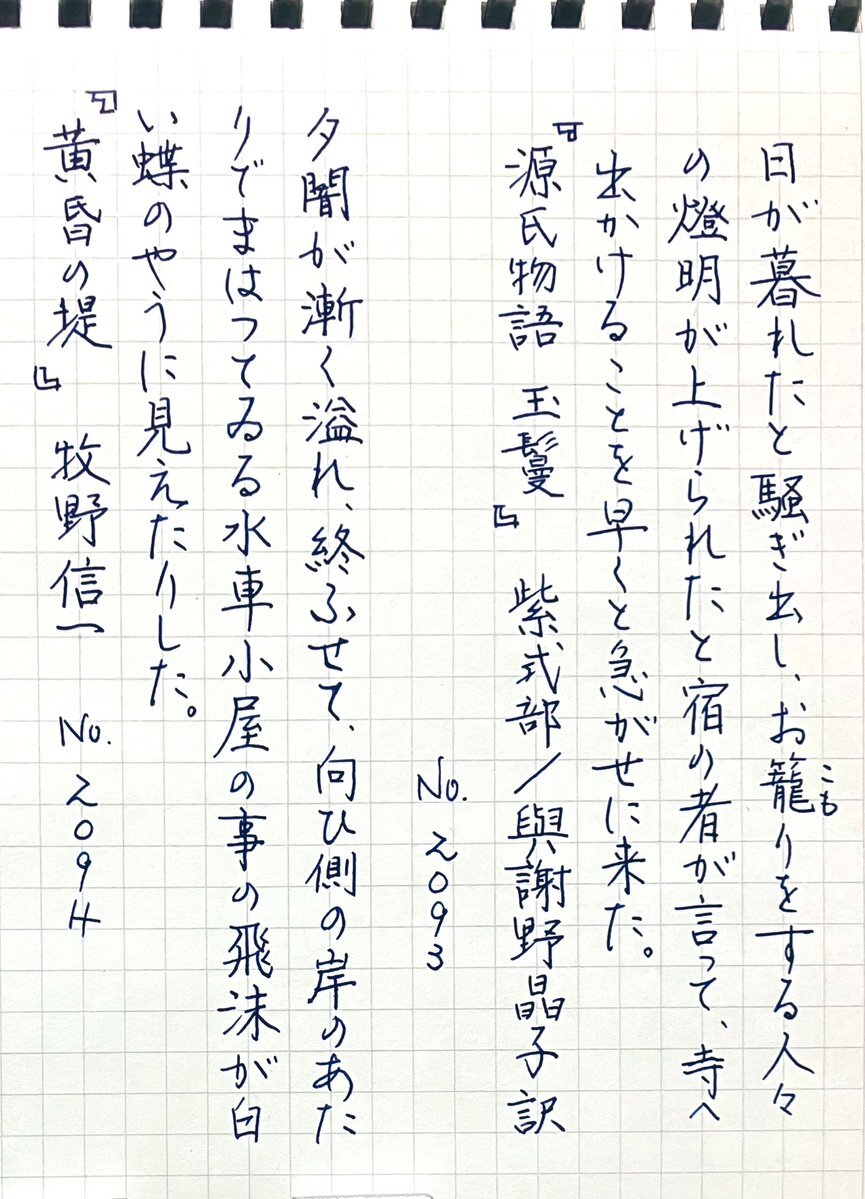 日が暮れたと騒ぎ出し、お籠りをする人々
こも
の燈明が上げられたと宿の者が言って、寺へ
出かけることを早くと急がせに来た。
『源氏物語 玉鬘』 紫式部/與謝野晶子訳
No. 2093
夕闇が漸く溢れ、終ふせて、向ひ側の岸のあた
りでまはつてゐる水車小屋の事の飛沫が白
い蝶のやうに見えたりした。
『黄昏の堤』 牧野信一 No. 2094